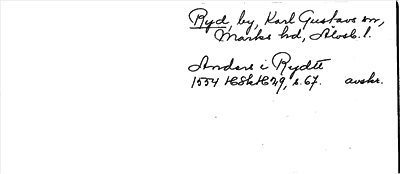 Ryd, by, Karl Gustavs sn,
Marks hd, Älvsb. l.
Anders i Rydtt
1554 HSkH 29, s. 67. avskr.